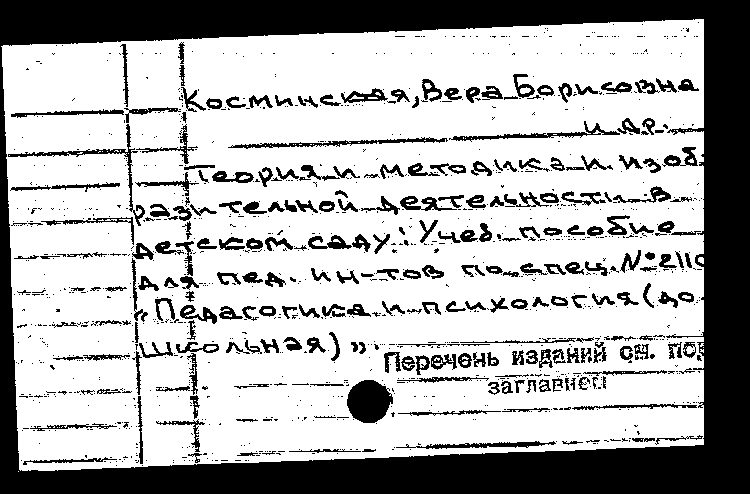 Косминская, Вера Борисовна
и др.
Теория и методика и. изоб-
разительной деятельности в
детском саду: Учеб. пособие
для пед. ин-тов по спец. №2110
"Педагогика и психология (до-
школьная)".
Перечень изданий см. под
заглавием